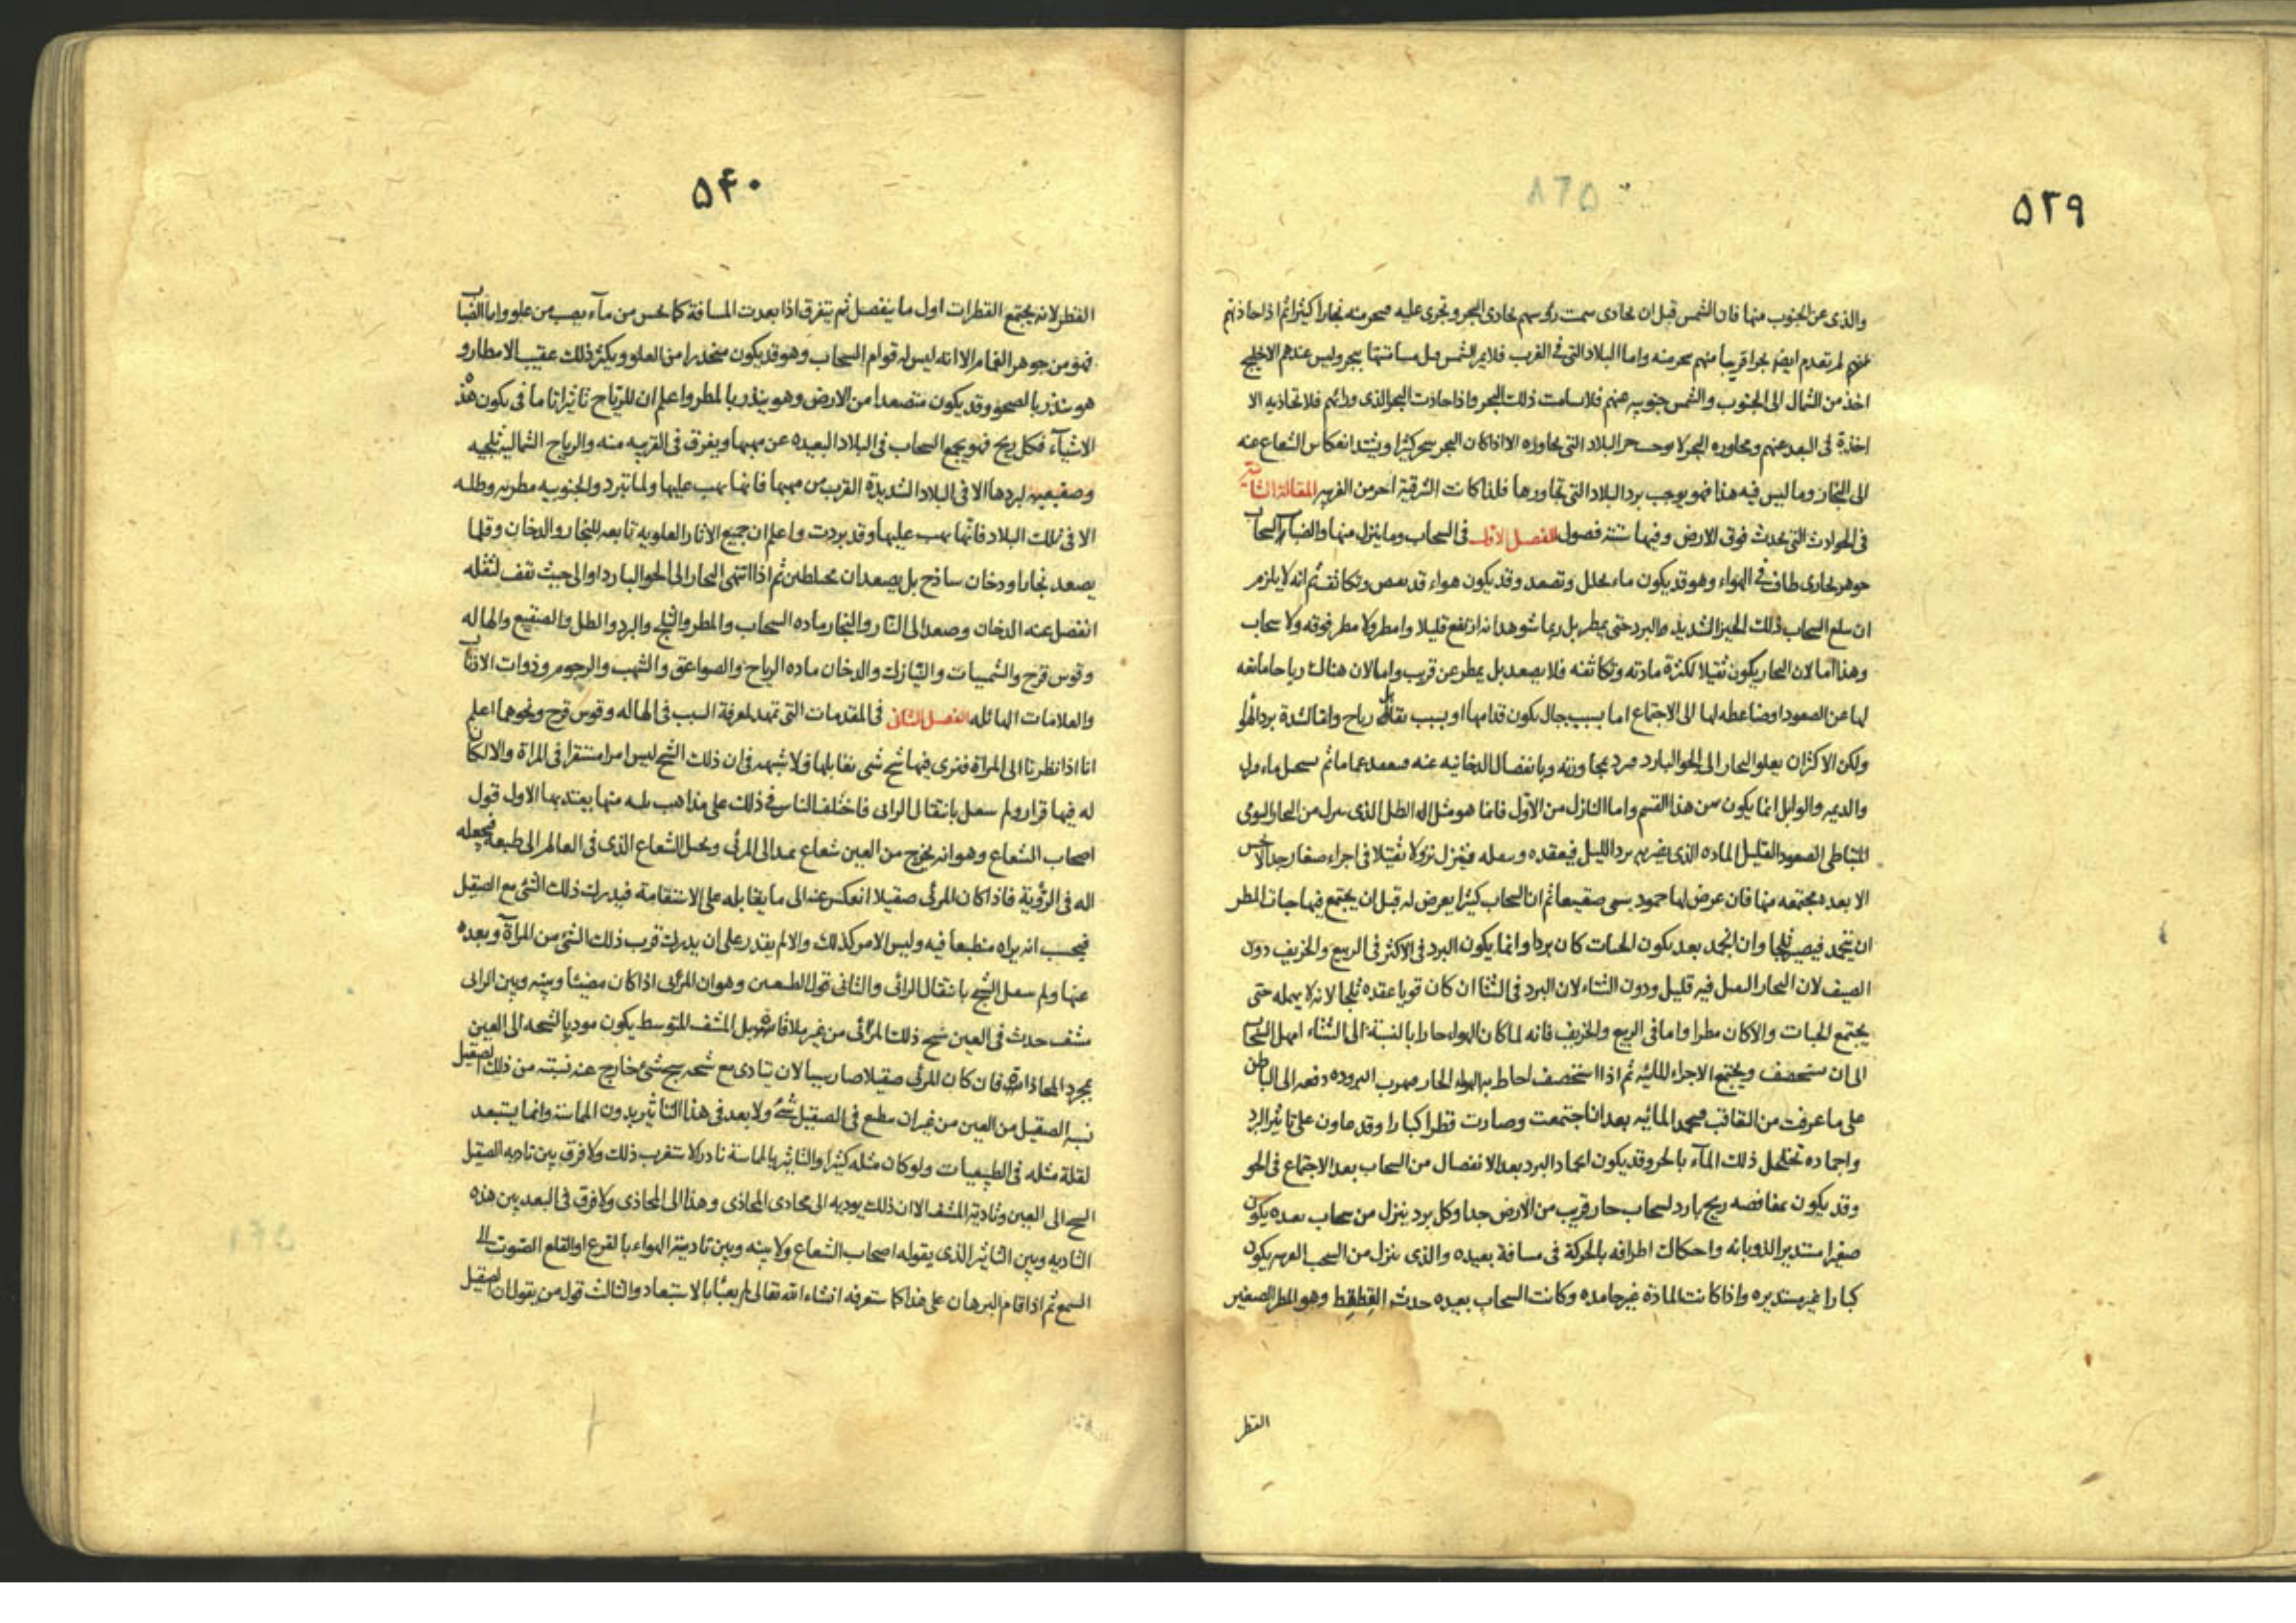 ۵۳۹
والذى عن الجنوب منها فان الشمس قبل ان تحاذى سمت رؤسهم تحاذى البحر وتجرى عليه فتبخر منه بخارا كثيرا ثم اذا حاذتهم
لم تعدم ايضا بخرا قريبا منهم واما البلاد التى فى الغرب فلا يمر الشمس قبل مسامتتها ببحر وليس عندهم الا خليج
اخذ من الشمال الى الجنوب والشمس جنوبيه عنهم فلا تسامت ذلك البحر واذا حاذت البحر الذى ورائهم فلا تحاذيه الا
اخذة فى البعد عنهم ومجاوره البحر لا يوجب حر البلاد التى تجاوره الا اذا كان البحر يتبخر كثيرا ويشتد انعكاس الشعاع عنه
الى البخار وما ليس فيه هذا فهو يوجب برد البلاد التى تجاورها فلذا كانت الشرقية احر من الغربيه المقالة الثانية
فى الحوادث التى تحدث فوق الارض وفيها ستة فصول الفصل الاول فى السحاب وما ينزل منها والضباب السحاب
جوهر بخارى طاف فى الهواء وهو قد يكون ماء تحلل وتصعد وقد يكون هواء قد تقبض وتكاثف ثم انه لا يلزم
ان يبلغ السحاب ذلك الحيز الشديد البرد حتى يمطر بل ربما شوهد انه ارتفع قليلا وامطر ولا مطر فوقه ولا سحاب
وهذا اما لان البخار يكون ثقيلا لكثرة مادته وتكاثفه فلا يصعد بل يمطر عن قريب واما لان هناك رياحا مانعه
لها عن الصعود او ضاغطه لها الى الاجتماع اما بسبب جبال يكون قدامها او بسبب تقابل رياح واما لشدة برد الهواء
ولكن الاكثر ان يعلو البخار الى الجو البارد فيبرد بمجاورته وبانفصال الدخانيه عنه فينعقد غماما ثم يستحيل ماء ينزل
والديمه والوابل انما يكون من هذا القسم واما النازل من الاول فانما هو مثل الطل الذى ينزل من البخار اليومى
المتباطى الصعود القليل الماده الذى يضربه برد الليل فيعقده فينزل نزولا ثقيلا فى اجزاء صغار جدا لا تحس
الا بعد مجتمعه منها فان عرض لها جمود سمى صقيعا ثم ان السحاب كثيرا يعرض له قبل ان يجتمع فيها حبات المطر
ان يتجمد فيصير ثلجا وان انجمد بعد تكون الحبات كان بردا وانما يكون البرد فى الاكثر فى الربيع والخريف دون
الصيف لان البخار الثقيل فيه قليل ودون الشتاء لان البرد فى الشتا ان كان قويا عقده ثلجا لانه لا يمهله حتى
يجتمع الحبات والا كان مطرا واما فى الربيع والخريف فانه لما كان الهواء حارا بالنسبة الى الشتاء امهل السحاب
الى ان يستحصف ويجتمع الاجزاء المائيه ثم اذا استحصف احاط به الهواء الحار فهرب البروده دفعه الى الباطن
على ما عرفت من التعاقب فيجمد المائيه بعد ان اجتمعت وصارت قطرا كبارا وقد يعاون على تاثير البرد
واجماده تخلخل ذلك الماء بالحر وقد يكون اجماد البرد بعد الانفصال من السحاب بعد الاجتماع فى الجو
وقد يكون بمغافصه ريح بارد لسحاب حار قريب من الارض جدا وكل برد ينزل من سحاب بعيده يكون
صغيرا مستديرا لذوبانه واحتكاك اطرافه بالحركة فى مسافة بعيده والذى ينزل من السحب القريبه يكون
كبارا غير مستديره واذا كانت المادة غير جامده وكانت السحاب بعيده حدث القطقط وهو المطر الصغير
القطر
۵۴۰
القطر لانه يجتمع القطرات اول ما ينفصل ثم يتفرق اذا بعدت المسافة كما يحس من ماء يصب من علو واما الضباب
فهو من جوهر الغمام الا انه ليس له قوام السحاب وهو قد يكون منحدرا من العلو ويكثر ذلك عقيب الامطار و
هو ينذر بالصحو وقد يكون متصعدا من الارض وهو ينذر بالمطر واعلم ان للرياح تاثيرا تاما فى يكون هذه
الاشيآء فكل ريح فهو يجمع السحاب فى البلاد البعيده عن مهبها ويفرق فى القريبه منه والرياح الشمالية ثلجيه
وصقيعيه لبردها الا فى البلاد الشديدة القرب من مهبها فانها يهب عليها ولما تبرد والجنوبيه مطريه وطليه
الا فى تلك البلاد فانها يهب عليها وقد بردت واعلم ان جميع الاثار العلويه تابعه للبخار والدخان وقلما
يصعد بخار او دخان ساذج بل يصعدان مختلطين ثم اذا انتهى البخار الى الجو البارد او الى حيث يقف لثقله
انفصل عنه الدخان وصعد الى النار والبخار ماده السحاب والمطر والثلج والبرد والطل والصقيع والهاله
وقوس قزح والشميسات والنيازك والدخان ماده الرياح والصواعق والشهب والرجوم وذوات الاذناب
والعلامات الهائله الفصل الثانى فى المقدمات التى تمهد لمعرفة السبب فى الهاله وقوس قزح ونحوهما اعلم
انا اذا نظرنا الى المراة فنرى فيها شبح شى يقابلها فلا شبهه فى ان ذلك الشبح ليس امرا مستقرا فى المراة والا لكان
له فيها قرار ولم ينتقل بانتقال الرائى فاختلف الناس فى ذلك على مذاهب ثلثه منها يعتد بها الاول قول
اصحاب الشعاع وهو انه يخرج من العين شعاع يمتد الى المرئى ويحيل الشعاع الذى فى العالم الى طبعه فيجعله
اله فى الرؤية فاذا كان المرئى صقيلا انعكس عنه الى ما يقابله على الاستقامة فيدرك ذلك الشئ مع الصقيل
فيحسب انه يراه منطبعا فيه وليس الامر كذلك والا لم يقدر على ان يدرك قرب ذلك الشئ من المرآة وبعده
عنها ولم ينتقل الشبح بانتقال الرائى والثانى قول الطبيعيين وهو ان المرئى اذا كان مضيئا وبينه وبين الرائى
مشف حدث فى العين شبح ذلك المرئى من غير ملاقاة بل المشف المتوسط يكون موديا لشبحه الى العين
بمجرد المحاذاة فان كان المرئى صقيلا صار سببا لان يتادى مع شبحه شبح شئ خارج عنه نسبته من ذلك الصقيل
نسبة الصقيل من العين من غير ان ينطبع فى الصقيل شئ ولا بعد فى هذا التاثير بدون المماسة وانما يستبعد
لقلة مثله فى الطبيعيات ولو كان مثله كثيرا والتاثير بالمماسة نادرا لاستغرب ذلك ولا فرق بين تاديه الصقيل
الشبح الى العين وتادية المشف الا ان ذلك يوديه الى محاذى المحاذى وهذا الى المحاذى ولا فرق فى البعد بين هذه
التاديه وبين التاثير الذى يقوله اصحاب الشعاع ولا بينه وبين تادية الهواء بالقرع او القلع الصوت الى
السمع ثم اذا قام البرهان على هذا كما ستعرفه انشاء الله تعالى لم يعبأ بالاستبعاد والثالث قول من يقول ان الصقيل